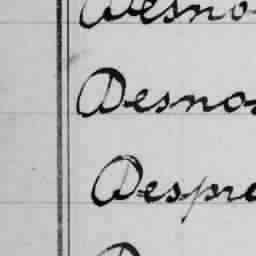 Desno
Desnos
Despre